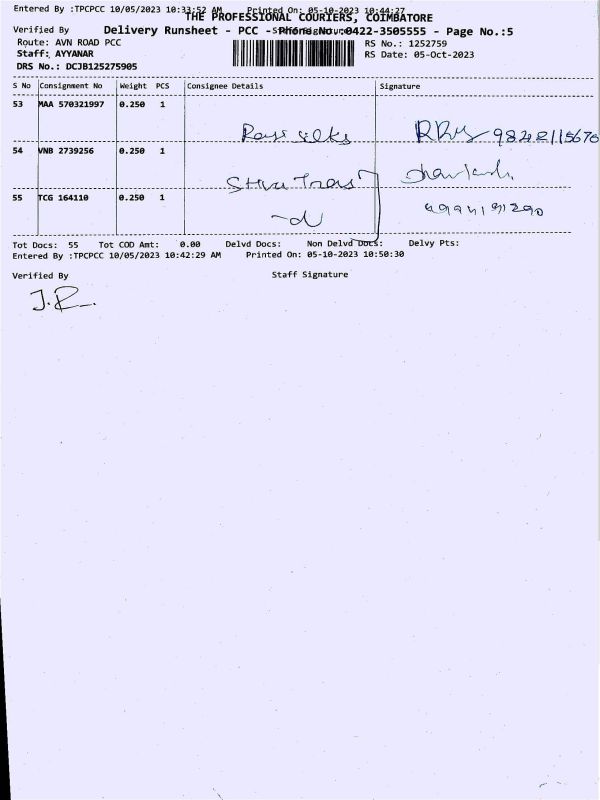 Entered By :TPCPCC 10/05/2023 10:33:52 AM Printed On: 05-10-2023 10:44:27
THE PROFESSIONAL COURIERS, COIMBATORE
Verified By Staff Signature
Delivery Runsheet - PCC - Phone No.:0422-3505555 - Page No.:5
Route: AVN ROAD PCC RS No.: 1252759
Staff: AYYANAR RS Date: 05-Oct-2023
DRS No.: DCJB125275905
S No Consignment No Weight PCS Consignee Details Signature
53 MAA 570321997 0.250 1
silks 9842115670
54 VNB 2739256 0.250 1
55 TCG 164110 0.250 1
Tot Docs: 55 Tot COD Amt: 0.00 Delvd Docs: Non Delvd Docs: Delvy Pts:
Entered By :TPCPCC 10/05/2023 10:42:29 AM Printed On: 05-10-2023 10:50:30
Verified By Staff Signature
J.R.